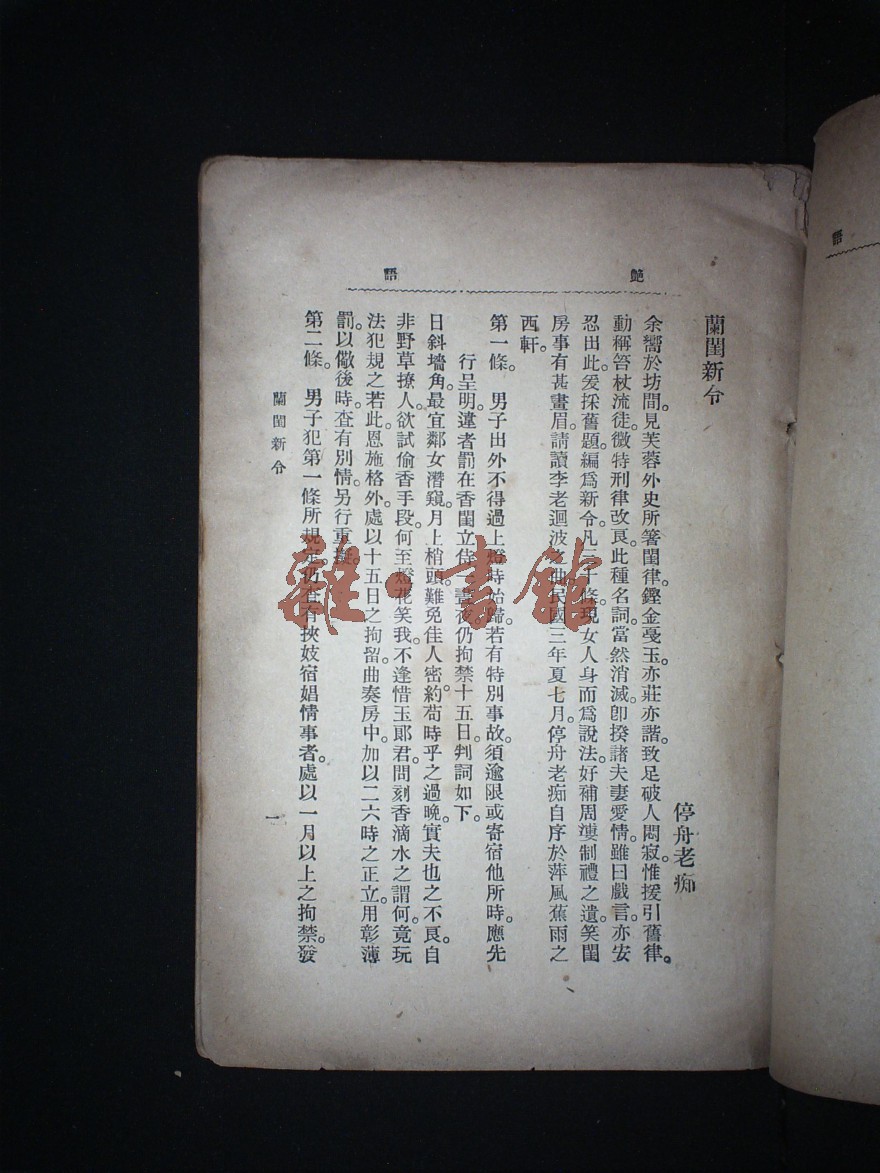 艷語
蘭閨新令
停舟老痴
余嚮於坊間。見芙蓉外史所箸閨律。鏗金戞玉。亦莊亦諧。致足破人悶寂。惟援引舊律。
動稱笞杖流徒。微特刑律改良。此種名詞。當然消滅。卽揆諸夫妻愛情。雖曰戲言。亦安
忍出此。爰採舊題。編爲新令。凡三十條。現女人身而爲說法。好補周婁制禮之遺。笑閨
房事有甚畫眉。請讀李老迴波之曲。民國三年夏七月。停舟老痴自序於萍風蕉雨之
西軒。
第一條。 男子出外不得過上燈時始歸。若有特別事故。須逾限或寄宿他所時。應先
行呈明。違者罰在香閨立侍一晝夜。仍拘禁十五日。判詞如下。
日斜墻角。最宜鄰女潛窺。月上梢頭。難免佳人密約。苟時乎之過晚。實夫也之不良。自
非野草撩人。欲試偷香手段。何至燈花笑我。不逢惜玉郞君。問刻香滴水之謂何。竟玩
法犯規之若此。恩施格外。處以十五日之拘留。曲奏房中。加以二六時之正立。用彰薄
罰。以儆後時。查有別情。另行重擬。
第二條。 男子犯第一條所規定。仍查有挾妓宿娼情事者。處以一月以上之拘禁。發
蘭閨新令
一
語
雜·書館